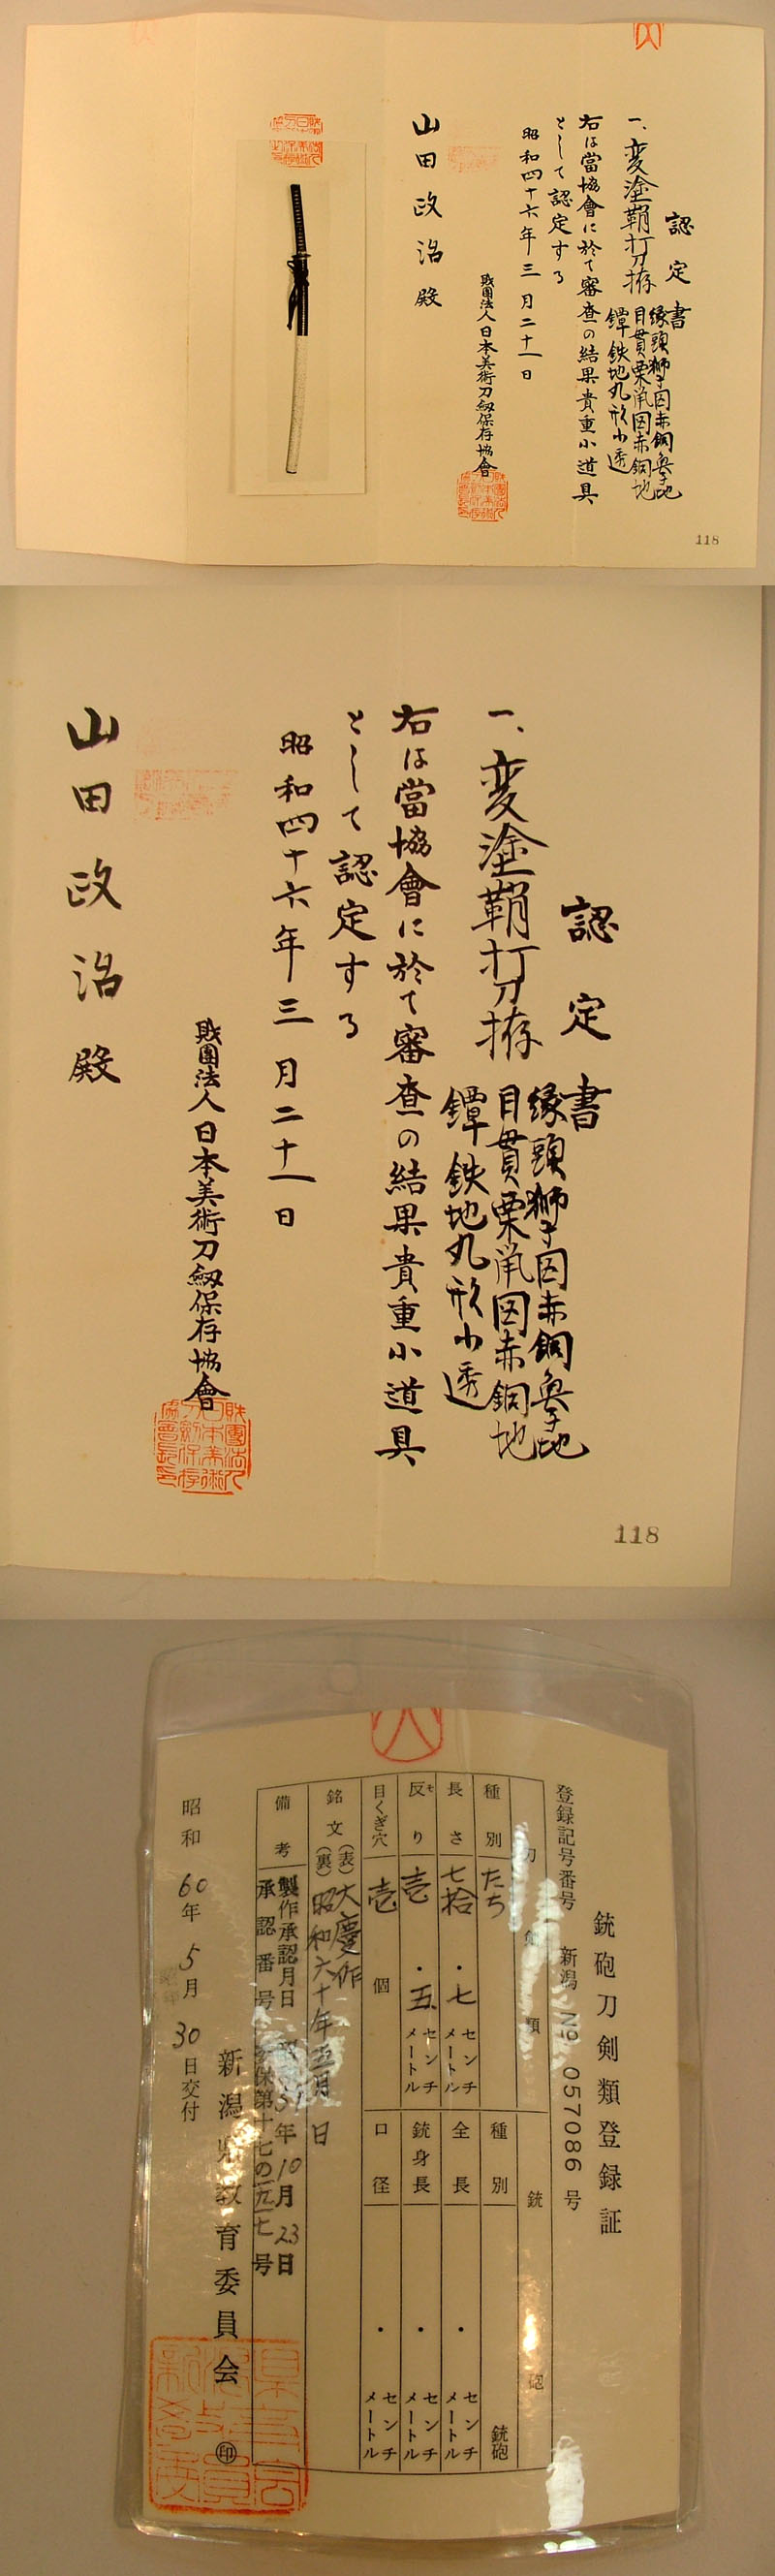 認定書
一、変塗鞘打刀拵
縁頭獅子図赤銅魚子地
目貫栗鼠図赤銅地
鐔鉄地丸形小透
右は當協會に於て審査の結果貴重小道具
として認定する
昭和四十六年三月二十一日
財團法人日本美術刀剱保存協會
山田政治殿
118
認定書
一、変塗鞘打刀拵
縁頭獅子図赤銅魚子地
目貫栗鼠図赤銅地
鐔鉄地丸形小透
右は當協會に於て審査の結果貴重小道具
として認定する
昭和四十六年三月二十一日
財團法人日本美術刀剱保存協會
財團法人日本美術刀剱保存協會長印
山田政治殿
118
銃砲刀剣類登録証
登録記号番号 新潟 № 057086 号
刀剣類
銃砲
種別 たち
種別 銃砲
長さ 七拾・七センチメートル
全長 ・ センチメートル
反り 壱・五センチメートル
銃身長 ・ センチメートル
目くぎ穴 壱個
口径 ・ センチメートル
銘文
(表) 大慶作
(裏) 昭和六十年五月 日
備考
製作承認月日 年10月23日
承認番号 保第十七の 号
昭和60年5月30日交付
新潟県教育委員会 ㊞